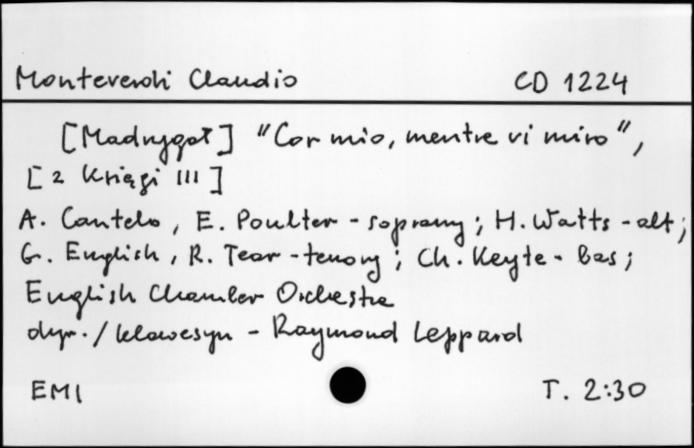 Monteverdi Claudio CD 1224
[Madrygał] "Cor mio, mentre vi miro",
[z Księgi III]
A. Cantelo, E. Poulter - soprany; H. Watts - alt;
G. English, R. Tear - tenory; Ch. Keyte - bas;
English Chamber Orchestra
dyr./klawesyn - Raymond Leppard
EMI T. 2:30